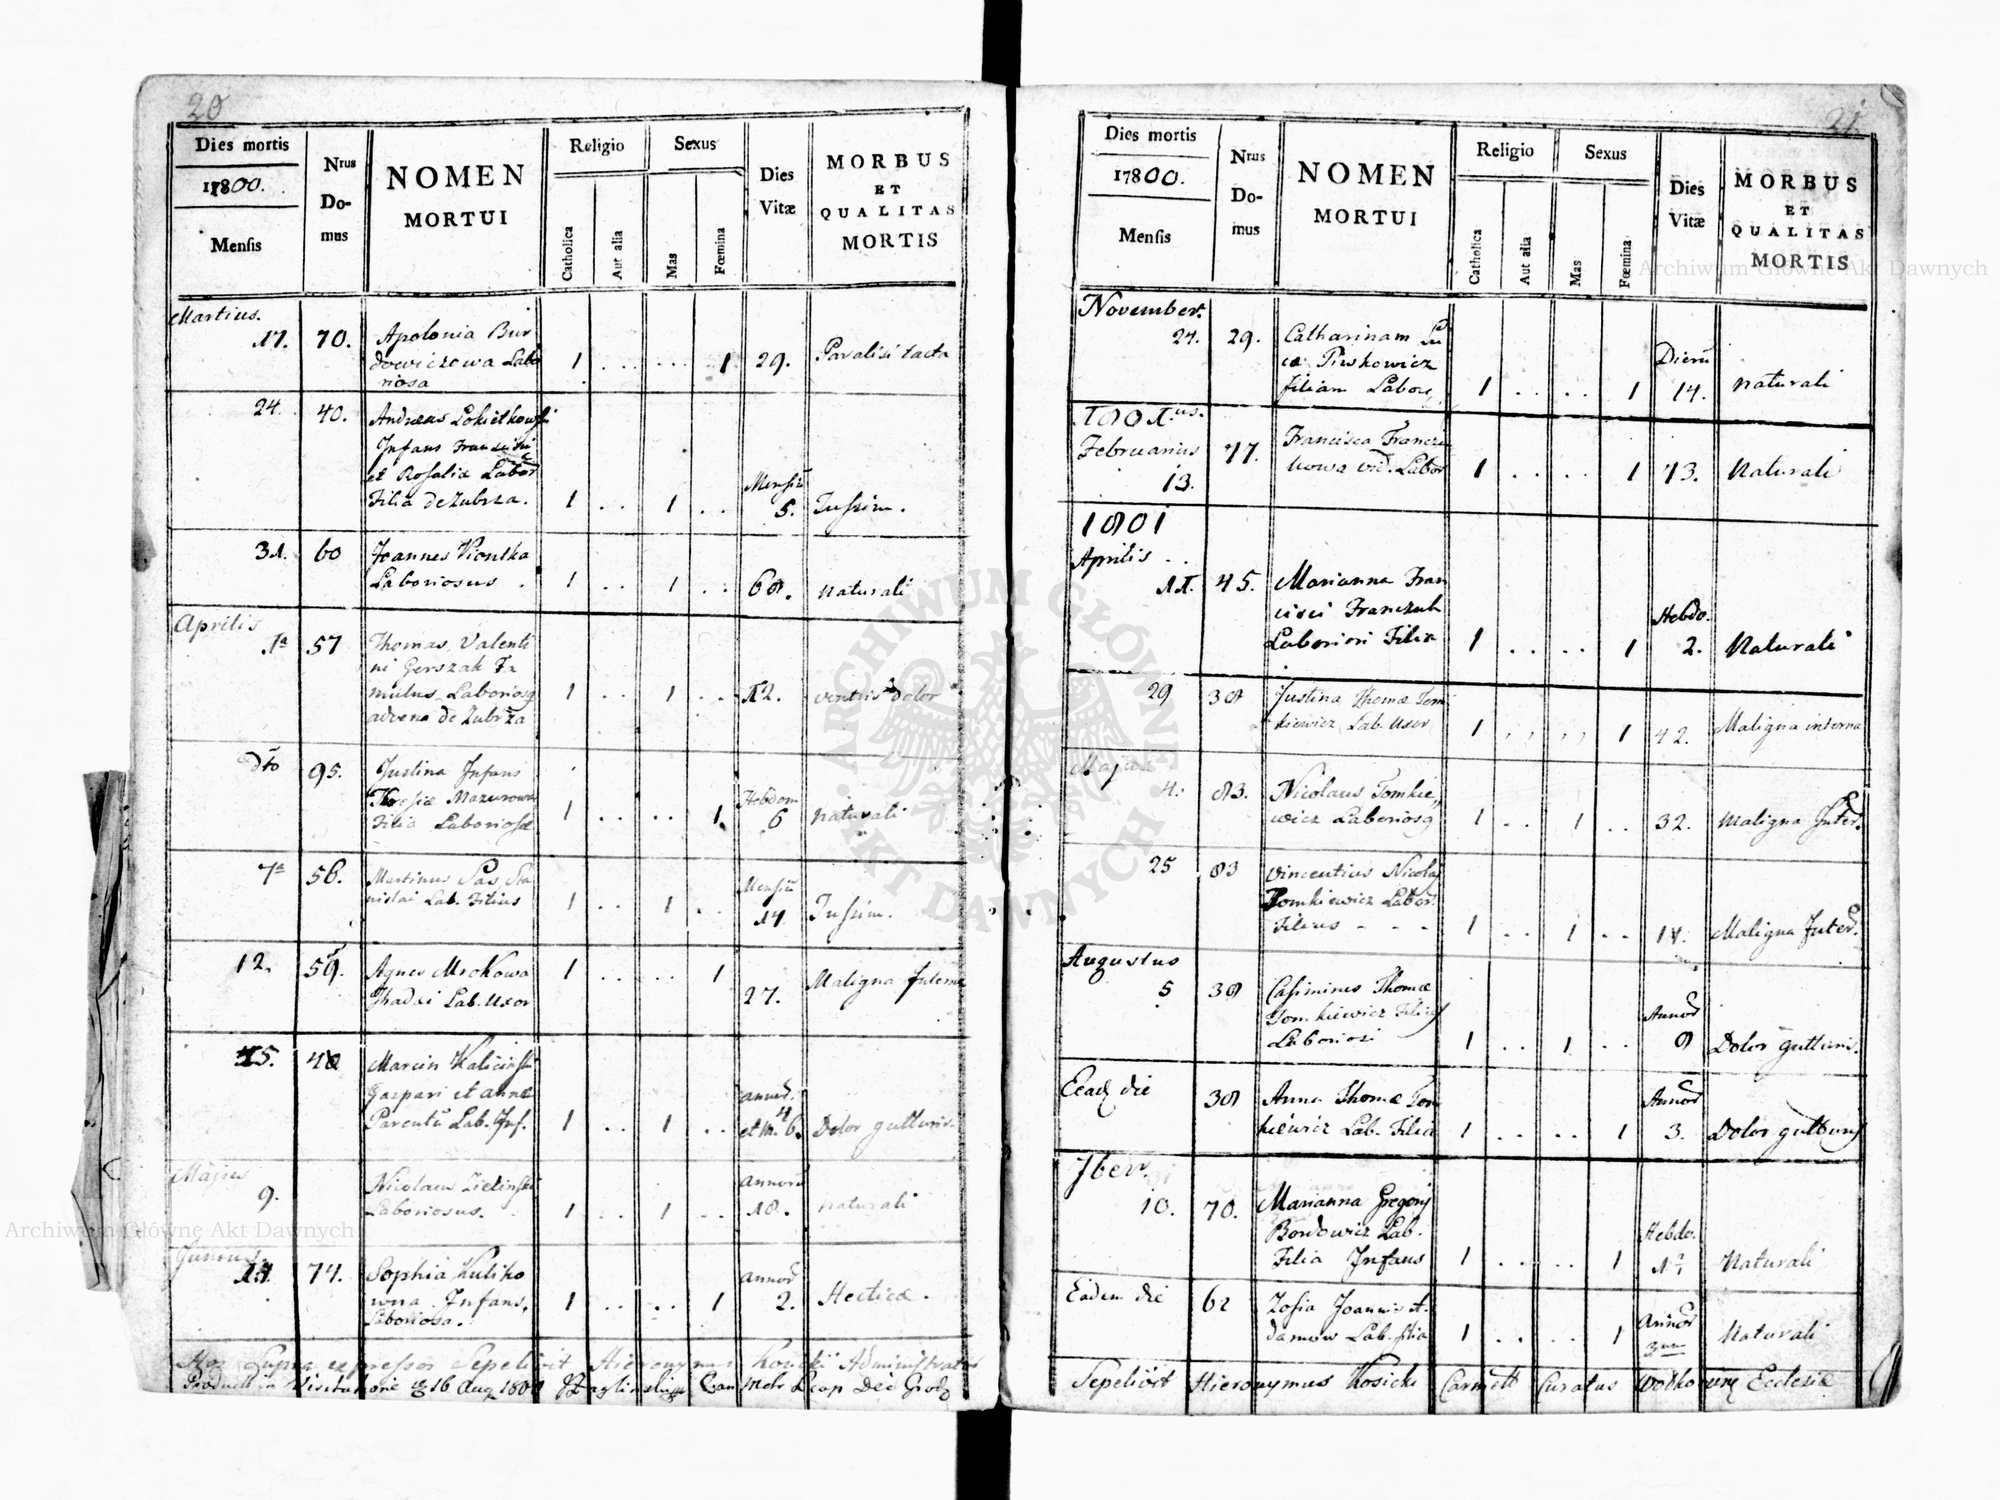 20
Dies mortis
1800.
Mensis
Nrus
Do-
mus
NOMEN
MORTUI
Religio
Catholica
Aut alia
Sexus
Mas
Fœmina
Dies
Vitæ
MORBUS
ET
QUALITAS
MORTIS
Martius.
17. 70. Apolonia Bur
dowiczowa Labo
riosa 1 .. ... 1 29. Paralisi tacta
24. 40. Andreas Lokietkowski
Infans Francisci
et Rosalia Labor
Filia de Zubrza. 1 .. 1 .. Mensiũ
5. Tussim.
31. 60 Joannes Piontka
Laboriosus . 1 .. 1 .. 68. naturali
Aprilis
1ª 57 Thomas Valenti
ni Gerszak Fa
mulus Laboriosg
advena de Zubrza 1 .. 1 .. 12. ventris dolor
dto 95. Justina Infans
Theresiæ Mazurowa
Filia Laboriosæ 1 .. .. 1 Hebdom
6 naturali
7ª 56. Martinus Sas, Sta
nislai Lab. Filius 1 .. 1 .. Mensiũ
17 Tussim.
12. 59. Agnes Mrokowa
Thadei Lab. Uxor 1 .. .. 1 27. Maligna Interna
15. 48 Marcin Kalicinski
Gaspari et annæ
Parentũ Lab. Inf. 1 .. 1 .. annor.
4
et M. 6. Dolor gutturis.
Majus
9. Nicolaus Zielinski
Laboriosus. 1 .. 1 .. annorũ
18. naturali
Junius
14. 74. Sophia Kuliko
wna Infans,
Laboriosa. 1 .. .. 1 annor
2. Hecticæ.
Supra expressos Sepelivit Hieronymus Kosicki Administrator
Product in Visitatione 16 Aug 1800
21.
Dies mortis
17800.
Mensis
Nrus
Do-
mus
NOMEN
MORTUI
Religio
Catholica
Aut alia
Sexus
Mas
Fœmina
Dies
Vitæ
MORBUS
ET
QUALITAS
MORTIS
November.
24. 29. Catharinam Lu
cæ Piwkowicz
filiam Labor, 1 .. .. 1 Dierũ
14. naturali
1801.us.
Februarius
13. 77. Francisca Francz
kowa vid. Labor 1 .. .. 1 73. Naturali
1801
Aprilis ..
11. 45. Marianna Fran
cisci Franczuk
Laboriosi Filia 1 .. .. 1 Hebdo.
2. Naturali
29 38 Justina Thomæ Tom
kiewicz Lab. Uxor 1 .. .. 1 42. Maligna interna
Majus
4. 83. Nicolaus Tomkie,,
wicz Laboriosg 1 .. 1 .. 32. Maligna Inter.
25 83 Vincentius Nicolaj
Tomkiewicz Labor.
Filius - - - 1 .. 1 .. 14. Maligna Inter.
Augustus
5 38 Casimirus Thomæ
Tomkiewicz Filius
Laboriosi 1 .. 1 .. Annor
8 Dolor gutturis.
Eadē die 38 Anna Thomæ Tom
kiewicz Lab. Filia 1 .. .. 1 Annor
3. Dolor gutturis
7bern.
10. 70. Marianna Gregorij
Bordowicz Lab.
Filia Infans 1 .. .. 1 Hebdo.
Naturali
Eadem die 62 Zofia Joannis A.
damow Lab. filia 1 .. .. 1 Annor
3um Naturali
Sepelivit Hieronymus Kosicki Carmelit Curatus Wołkowinę Ecclesiæ
ARCHIWUM GŁÓWNE AKT DAWNYCH
Archiwum Główne Akt Dawnych
Archiwum Główne Akt Dawnych